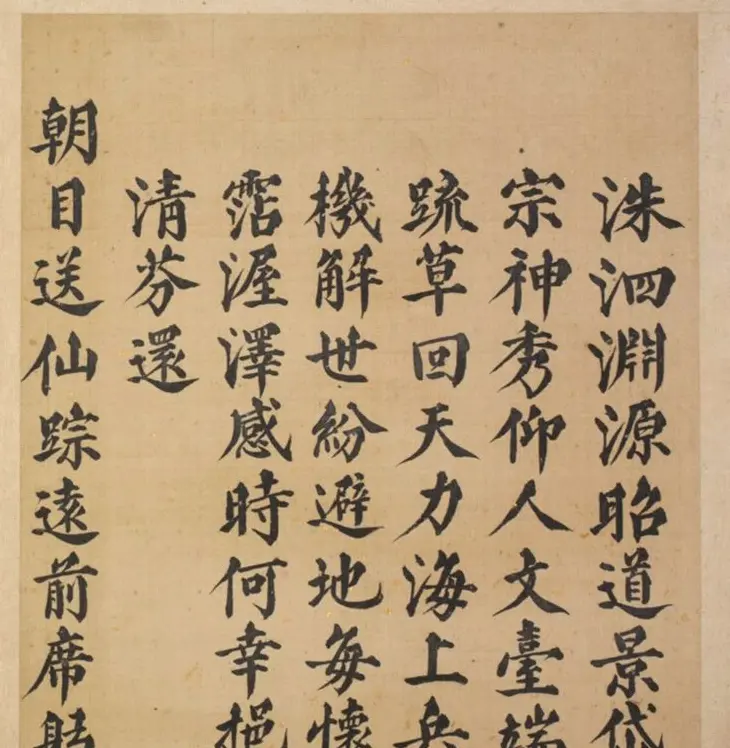 洙泗淵源昭道景岱
宗神秀仰人文臺端
疏草回天力海上兵
機解世紛避地每懷
霑渥澤感時何幸挹
清芬還
朝目送仙踪遠前席